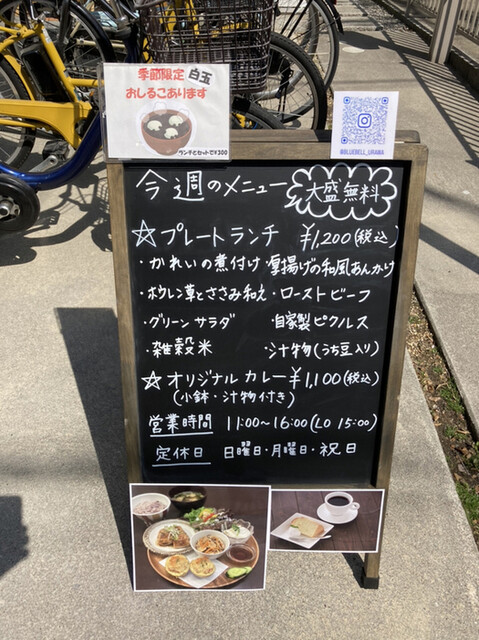 季節限定 白玉
おしるこあります
ランチとセットで¥300
@BLUEBELL_URAWA
今週のメニュー 大盛無料
☆プレートランチ ¥1,200(税込)
・かれいの煮付け ・厚揚げの和風あんかけ
・ホウレン草とささみ和え ・ローストビーフ
・グリーンサラダ ・自家製ピクルス
・雑穀米 ・汁物(うち豆入り)
☆オリジナルカレー ¥1,100(税込)
(小鉢・汁物付き)
営業時間 11:00~16:00(LO 15:00)
定休日 日曜日・月曜日・祝日